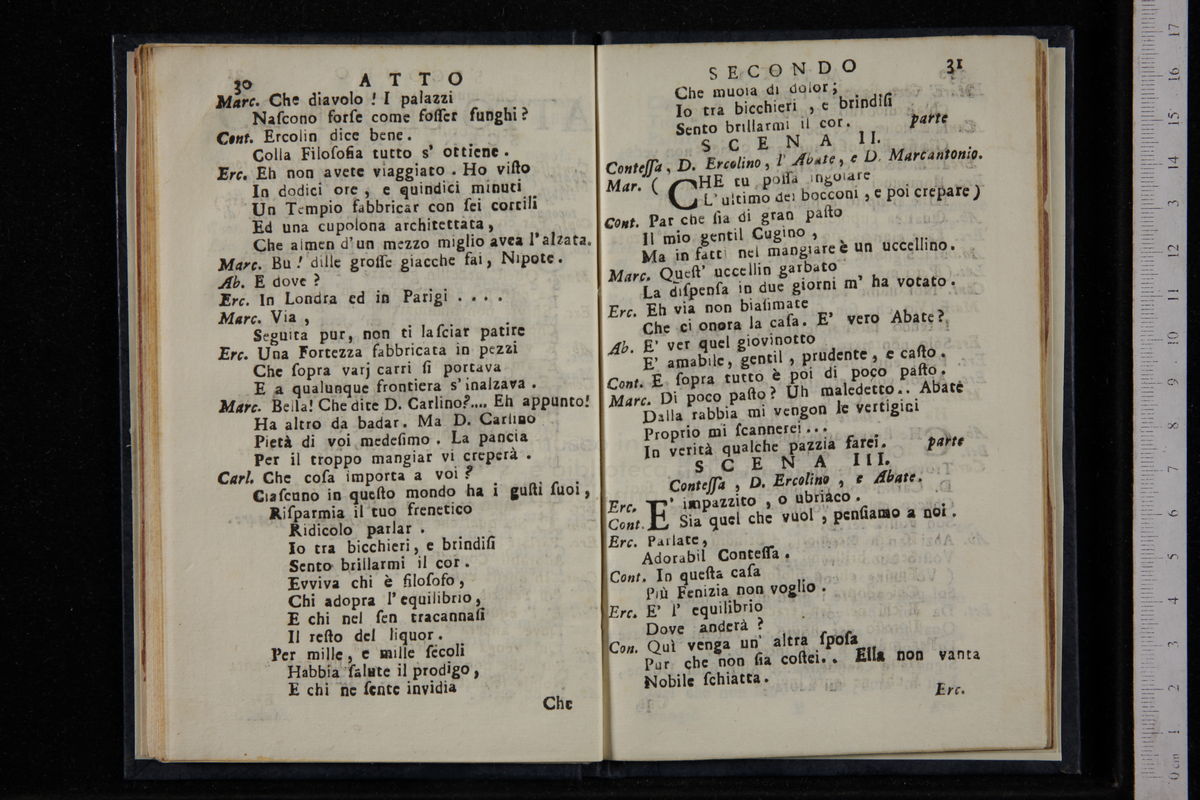 30 ATTO
Marc. Che diavolo ! I palazzi
Naſcono forſe come foſſer funghi ?
Cont. Ercolin dice bene .
Colla Filoſofia tutto s' ottiene .
Erc. Eh non avete viaggiato . Ho viſto
In dodici ore , e quindici minuti
Un Tempio fabbricar con ſei cortili
Ed una cupolona architettata ,
Che almen d'un mezzo miglio avea l'alzata.
Marc. Bu ! dille groſſe giacche fai , Nipote .
Ab. E dove ?
Erc. In Londra ed in Parigi . . . .
Marc. Via ,
Seguita pur , non ti laſciar patire
Erc. Una Fortezza fabbricata in pezzi
Che ſopra varj carri ſi portava
E a qualunque frontiera s'inalzava .
Marc. Bella! Che dite D. Carlino?.... Eh appunto!
Ha altro da badar . Ma D. Carlino
Pietà di voi medeſimo . La pancia
Per il troppo mangiar vi creperà .
Carl. Che coſa importa a voi ?
Ciaſcuno in queſto mondo ha i guſti ſuoi ,
Riſparmia il tuo frenetico
Ridicolo parlar .
Io tra bicchieri , e brindiſi
Sento brillarmi il cor .
Evviva chi è filoſofo ,
Chi adopra l'equilibrio ,
E chi nel ſen tracannaſi
Il reſto del liquor .
Per mille , e mille ſecoli
Habbia ſalute il prodigo ,
E chi ne ſente invidia
Che
SECONDO 31
Che muoia di dolor ;
Io tra bicchieri , e brindiſi
Sento brillarmi il cor . parte
SCENA II.
Conteſſa , D. Ercolino , l' Abate , e D. Marcantonio.
Mar. ( CHE tu poſſa ingoiare
L'ultimo dei bocconi , e poi crepare )
Cont. Par che ſia di gran paſto
Il mio gentil Cugino ,
Ma in fatti nel mangiare è un uccellino .
Marc. Queſt' uccellin garbato
La diſpenſa in due giorni m' ha votato .
Erc. Eh via non biaſimate
Che ci onora la caſa . E' vero Abate ?
Ab. E' ver quel giovinotto
E' amabile , gentil , prudente , e caſto .
Cont. E ſopra tutto è poi di poco paſto .
Marc. Di poco paſto ? Uh maledetto .. Abate
Dalla rabbia mi vengon le vertigini
Proprio mi ſcannerei ...
In verità qualche pazzia farei . parte
SCENA III.
Conteſſa , D. Ercolino , e Abate .
Erc. E' impazzito , o ubriaco .
Cont. Sia quel che vuol , penſiamo a noi .
Erc. Parlate ,
Adorabil Conteſſa .
Cont. In queſta caſa
Più Fenizia non voglio .
Erc. E' l' equilibrio
Dove anderà ?
Con. Quì venga un' altra ſpoſa
Pur che non ſia coſtei . . Ella non vanta
Nobile ſchiatta .
Erc.